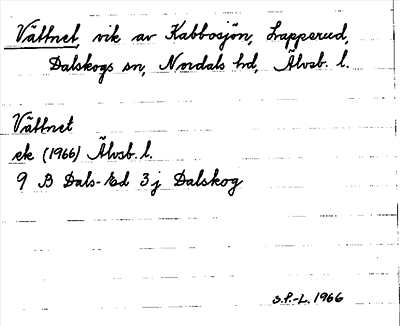 Vättnet, vik av Kabbosjön, Lapperud,
Dalskogs sn, Nordals hd, Älvsb. l.
Vättnet
ek (1966) Älvsb. l.
9 B Dals-Ed 3 j Dalskog
S.P.-L. 1966